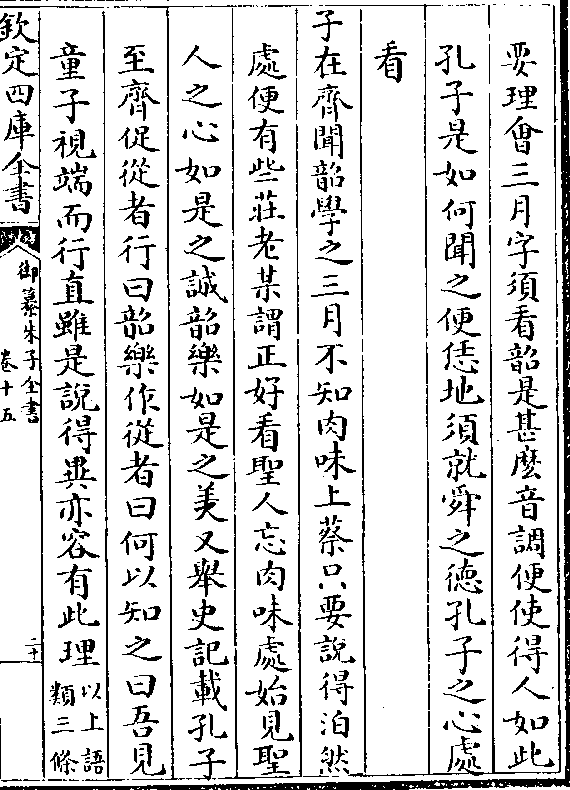 要理會三月字須看韶是甚麽音調便使得人如此
孔子是如何聞之便恁地須就舜之徳孔子之心處
看
子在齊聞韶學之三月不知肉味上蔡只要說得泊然
處便有些莊老某謂正好看聖人忘肉味處始見聖
人之心如是之誠韶樂如是之美又舉史記載孔子
至齊促從者行曰韶樂作從者曰何以知之曰吾見
童子視端而行直雖是說得異亦容有此理以上語類三條
欽定四庫全書
御纂朱子全書
卷十五
二十